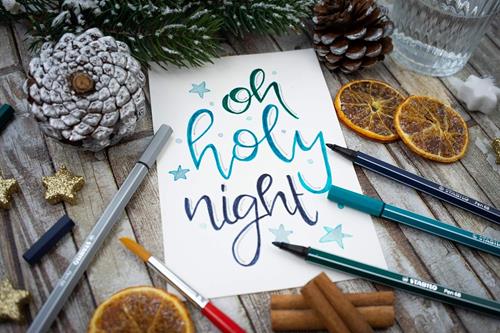 oh
holy
night
STABILO Pen 68
STABILO Pen 68
STABILO Pen 68